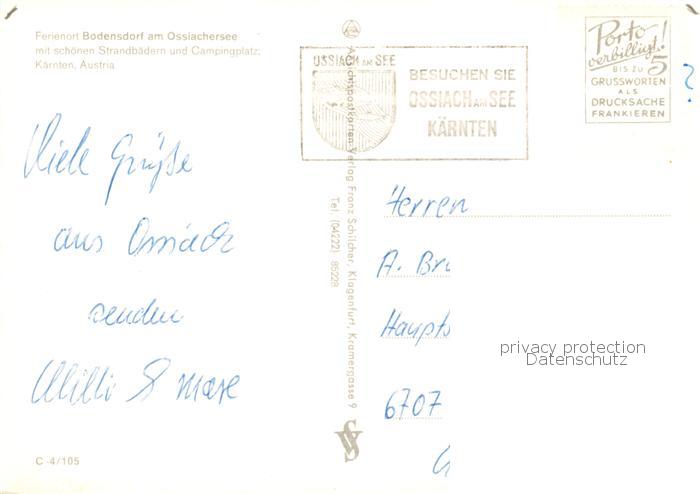 Ferienort Bodensdorf am Ossiachersee
mit schönen Strandbädern und Campingplatz,
Kärnten, Austria
Viele Grüße
aus Ossiach
senden
Willi &
C-4/105
Ansichtspostkarten-Verlag Franz Schilcher, Klagenfurt, Kramergasse 9
Tel. (04222) 85228
OSSIACH AM SEE
BESUCHEN SIE
OSSIACH AM SEE
KÄRNTEN
Porto
verbilligt!
BIS ZU 5
GRUSSWORTEN
ALS
DRUCKSACHE
FRANKIEREN
?
Herren
A. Bru
Haupts
6707
privacy protection
Datenschutz